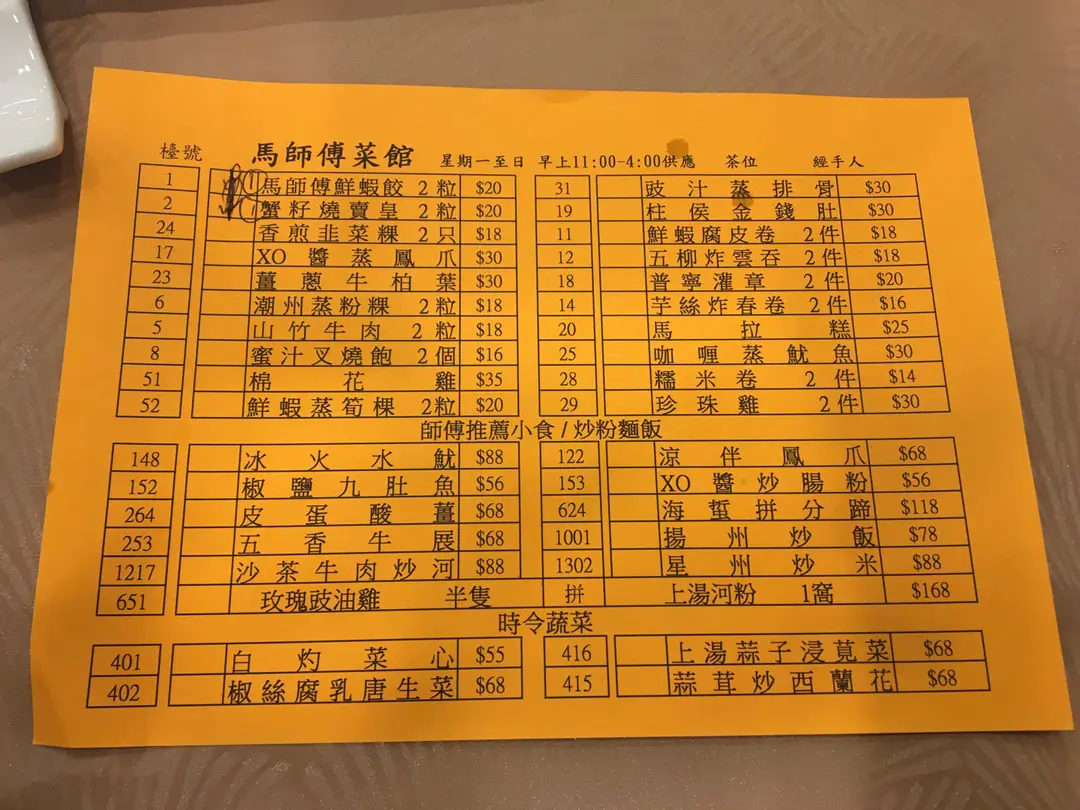 檯號 馬師傅菜館 星期一至日 早上11:00-4:00供應 茶位 經手人
1 ① 馬師傅鮮蝦餃 2粒 $20 31 豉汁蒸排骨 $30
2 ① 蟹籽燒賣皇 2粒 $20 19 柱侯金錢肚 $30
24 香煎韭菜粿 2只 $18 11 鮮蝦腐皮卷 2件 $18
17 XO醬蒸鳳爪 $30 12 五柳炸雲吞 2件 $18
23 薑蔥牛柏葉 $30 18 普寧灌章 2件 $20
6 潮州蒸粉粿 2粒 $18 14 芋絲炸春卷 2件 $16
5 山竹牛肉 2粒 $18 20 馬拉糕 $25
8 蜜汁叉燒飽 2個 $16 25 咖喱蒸魷魚 $30
51 棉花雞 $35 28 糯米卷 2件 $14
52 鮮蝦蒸筍棵 2粒 $20 29 珍珠雞 2件 $30
師傅推薦小食/炒粉麵飯
148 冰火水魷 $88 122 涼伴鳳爪 $68
152 椒鹽九肚魚 $56 153 XO醬炒腸粉 $56
264 皮蛋酸薑 $68 624 海蜇拼分蹄 $118
253 五香牛展 $68 1001 揚州炒飯 $78
1217 沙茶牛肉炒河 $88 1302 星州炒米 $88
651 玫瑰豉油雞 半隻 拼 上湯河粉 1窩 $168
時令蔬菜
401 白灼菜心 $55 416 上湯蒜子浸莧菜 $68
402 椒絲腐乳唐生菜 $68 415 蒜茸炒西蘭花 $68